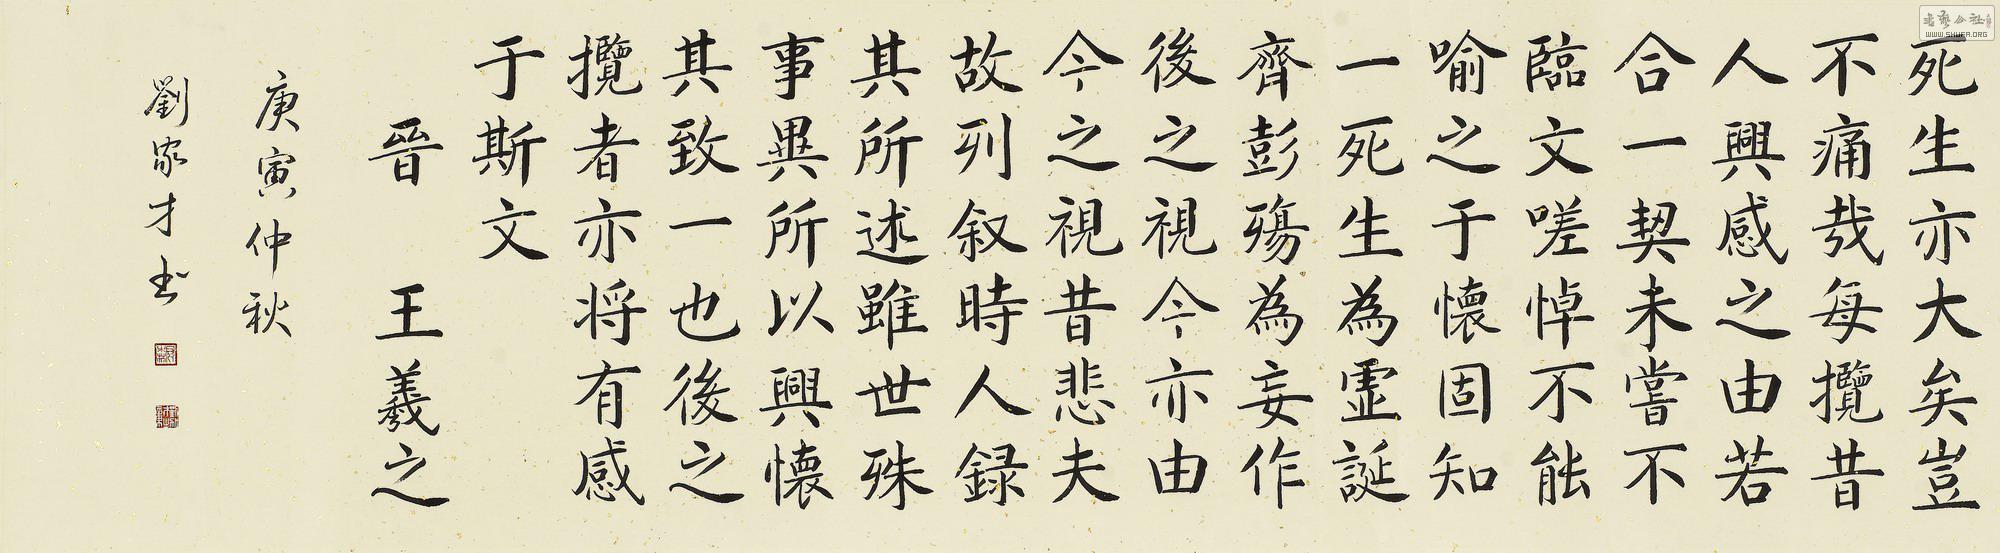 死生亦大矣豈
不痛哉每攬昔
人興感之由若
合一契未嘗不
臨文嗟悼不能
喻之于懷固知
一死生為虛誕
齊彭殤為妄作
後之視今亦由
今之視昔悲夫
故列叙時人録
其所述雖世殊
事異所以興懷
其致一也後之
攬者亦将有感
于斯文
晉 王羲之
庚寅仲秋
劉家才书
WWW.SHUFA.ORG